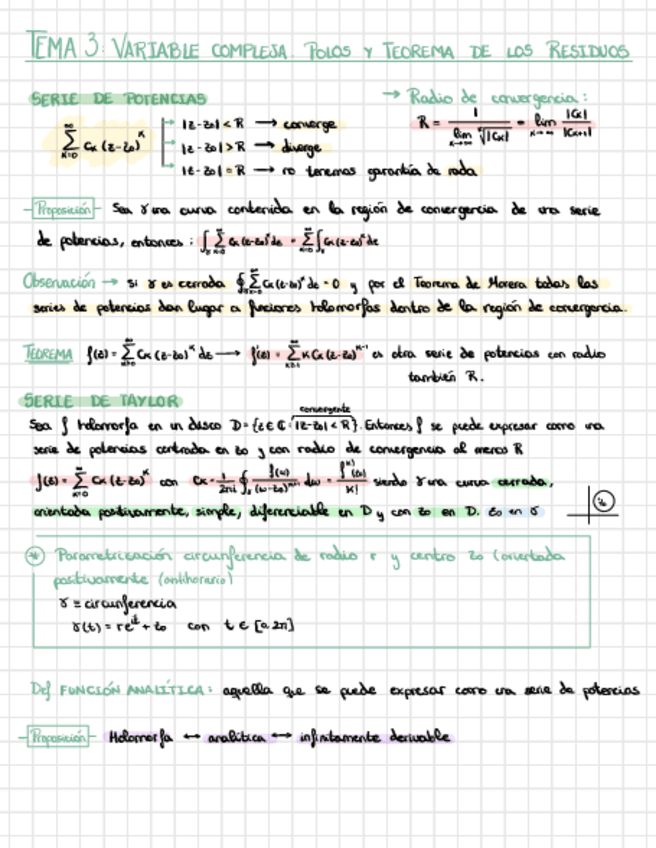 TEMA 3: VARIABLE COMPLEJA. POLOS Y TEOREMA DE LOS RESIDUOS
SERIE DE POTENCIAS
∑_{k=0}^{∞} C_k (z-z_0)^k
|z-z_0| < R → converge
|z-z_0| > R → diverge
|z-z_0| = R → no tenemos garantía de nada
→ Radio de convergencia:
R = 1 / lim_{k→∞} ᵏ√|C_k| = lim_{k→∞} |C_k| / |C_{k+1}|
Proposición Sea γ una curva contenida en la región de convergencia de una serie
de potencias, entonces: ∫_γ ∑_{k=0}^{∞} C_k (z-z_0)^k dz = ∑_{k=0}^{∞} ∫_γ C_k (z-z_0)^k dz
Observación → si γ es cerrada ∮_γ ∑_{k=0}^{∞} C_k (z-z_0)^k dz = 0 y por el Teorema de Morera todas las
series de potencias dan lugar a funciones holomorfas dentro de la región de convergencia.
TEOREMA f(z) = ∑_{k=0}^{∞} C_k (z-z_0)^k dz → f'(z) = ∑_{k=1}^{∞} k C_k (z-z_0)^{k-1} es otra serie de potencias con radio
también R.
SERIE DE TAYLOR
convergente
Sea f holomorfa en un disco D = {z ∈ ℂ : |z-z_0| < R}. Entonces f se puede expresar como una
serie de potencias centrada en z_0 y con radio de convergencia al menos R
f(z) = ∑_{k=0}^{∞} C_k (z-z_0)^k con C_k = 1/2πi ∮_γ f(w)/(w-z_0)^{k+1} dw = f^{(k)}(z_0)/k! siendo γ una curva cerrada,
orientada positivamente, simple, diferenciable en D y con z_0 en D. z_0 en γ
* Parametrización circunferencia de radio r y centro z_0 (orientada
positivamente (antihorario)
γ ≡ circunferencia
γ(t) = re^{it} + z_0 con t ∈ [0, 2π]
Def FUNCIÓN ANALÍTICA: aquella que se puede expresar como una serie de potencias
Proposición Holomorfa ↔ analítica ↔ infinitamente derivable